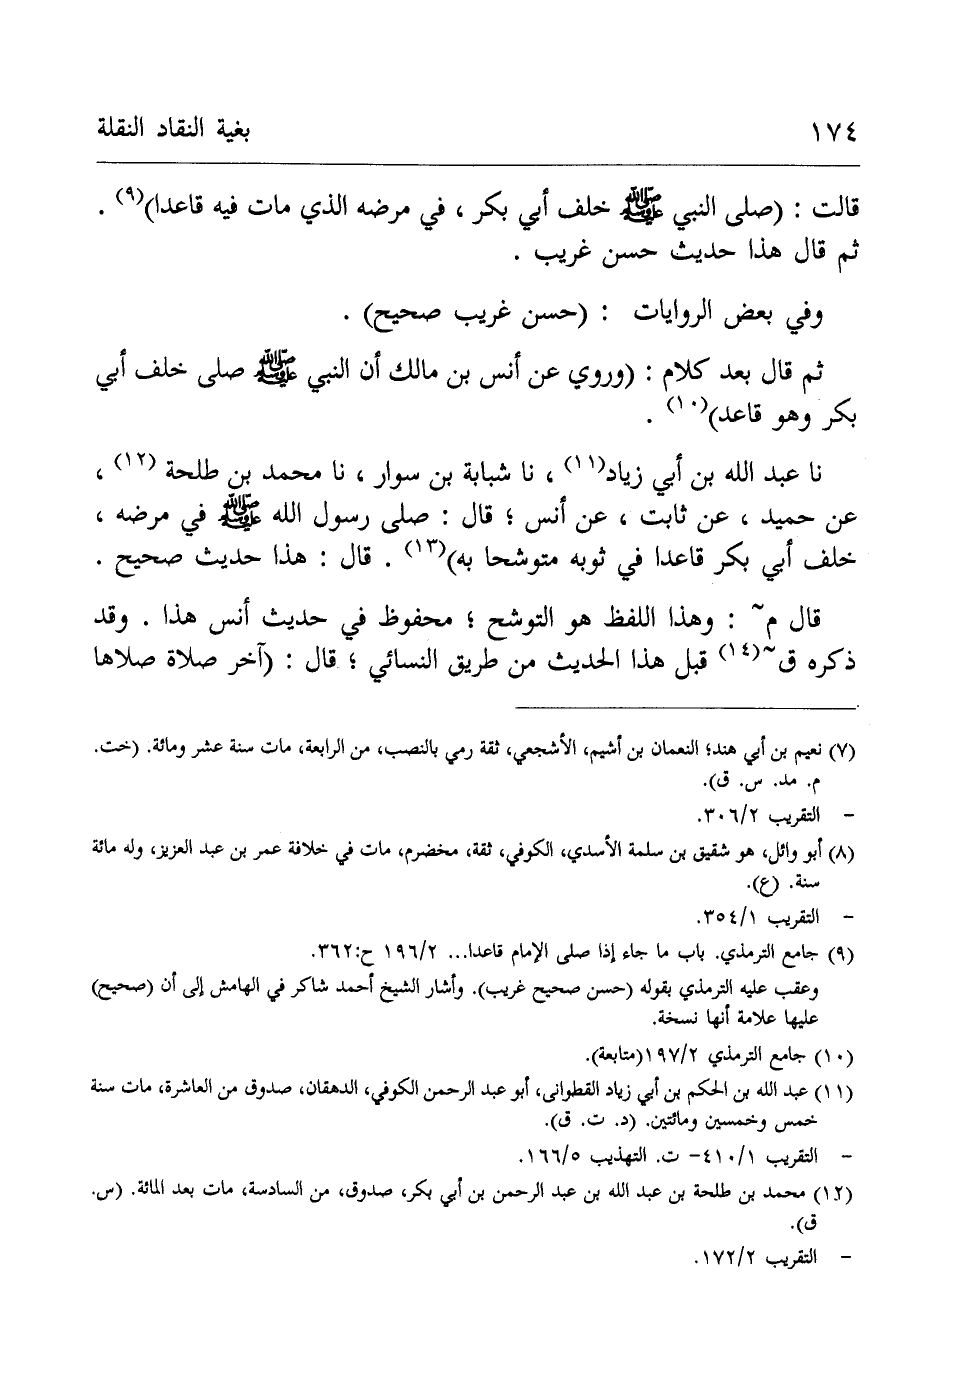 ١٧٤ بغية النقاد النقلة
قالت : (صلى النبي ﷺ خلف أبي بكر ، في مرضه الذي مات فيه قاعدا)(٩) .
ثم قال هذا حديث حسن غريب .
وفي بعض الروايات : (حسن غريب صحيح) .
ثم قال بعد كلام : (وروي عن أنس بن مالك أن النبي ﷺ صلى خلف أبي
بكر وهو قاعد)(١٠) .
نا عبد الله بن أبي زياد(١١) ، نا شبابة بن سوار ، نا محمد بن طلحة (١٢) ،
عن حميد ، عن ثابت ، عن أنس ؛ قال : صلى رسول الله ﷺ في مرضه ،
خلف أبي بكر قاعدا في ثوبه متوشحا به)(١٣) . قال : هذا حديث صحيح .
قال م~ : وهذا اللفظ هو التوشح ؛ محفوظ في حديث أنس هذا . وقد
ذكره ق~(١٤) قبل هذا الحديث من طريق النسائي ؛ قال : (آخر صلاة صلاها
(٧) نعيم بن أبي هند؛ النعمان بن أشيم، الأشجعي، ثقة رمي بالنصب، من الرابعة، مات سنة عشر ومائة. (خت.
م. مد. س. ق).
- التقريب ٣٠٦/٢.
(٨) أبو وائل، هو شقيق بن سلمة الأسدي، الكوفي، ثقة، مخضرم، مات في خلافة عمر بن عبد العزيز، وله مائة
سنة. (ع).
- التقريب ٣٥٤/١.
(٩) جامع الترمذي. باب ما جاء إذا صلى الإمام قاعدا... ١٩٦/٢ ح:٣٦٢.
وعقب عليه الترمذي بقوله (حسن صحيح غريب). وأشار الشيخ أحمد شاكر في الهامش إلى أن (صحيح)
عليها علامة أنها نسخة.
(١٠) جامع الترمذي ١٩٧/٢(متابعة).
(١١) عبد الله بن الحكم بن أبي زياد القطوانى، أبو عبد الرحمن الكوفي، الدهقان، صدوق من العاشرة، مات سنة
خمس وخمسين ومائتين. (د. ت. ق).
- التقريب ٤١٠/١- ت. التهذيب ١٦٦/٥.
(١٢) محمد بن طلحة بن عبد الله بن عبد الرحمن بن أبي بكر، صدوق، من السادسة، مات بعد المائة. (س.
ق).
- التقريب ١٧٢/٢.